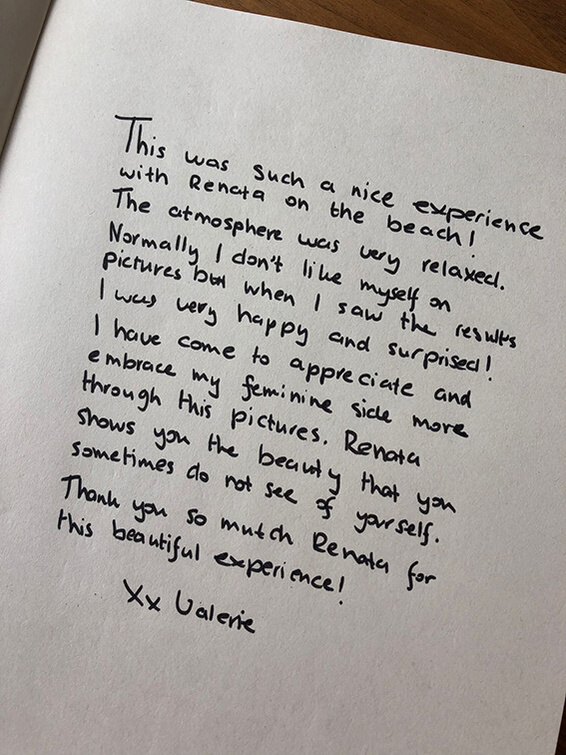 This was such a nice experience
with Renata on the beach!
The atmosphere was very relaxed.
Normally I don't like myself on
pictures but when I saw the results
I was very happy and surprised!
I have come to appreciate and
embrace my feminine side more
through this pictures. Renata
shows you the beauty that you
sometimes do not see of yourself.
Thank you so mutch Renata for
this beautiful experience!
Xx Valerie